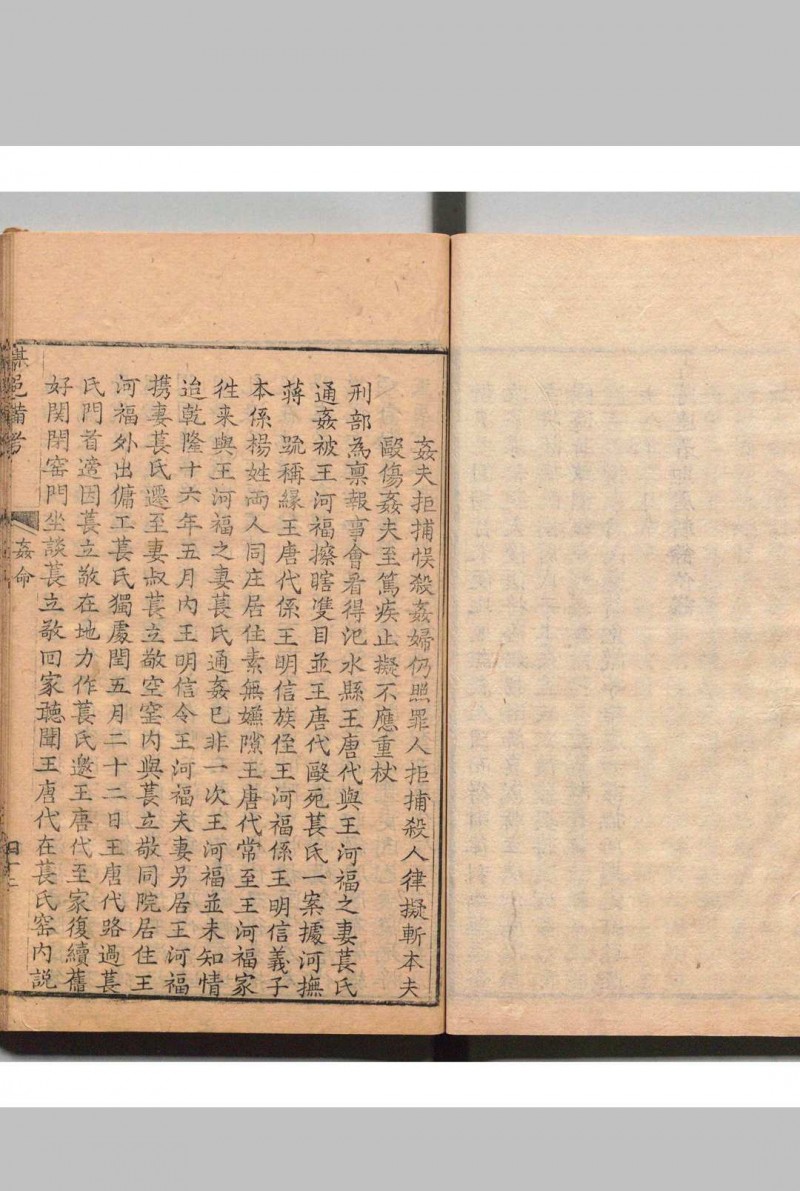 姦夫拒捕悞殺姦婦仍照罪人拒捕殺人律擬斬本夫
毆傷姦夫至篤疾止擬不應重杖
刑部為稟報事會看得汜水縣王唐代與王河福之妻萇氏
通姦被王河福擦瞎雙目並王唐代毆死萇氏一案據河撫
蔣 疏稱緣王唐代係王明信族侄王河福係王明信義子
本係楊姓兩人同庄居住素無嫌隙王唐代常至王河福家
徃来與王河福之妻萇氏通姦已非一次王河福並未知情
迨乾隆十六年五月內王明信令王河福夫妻另居王河福
携妻萇氏遷至妻叔萇立敬空窰内與萇立敬同院居住王
河福外出傭工萇氏獨處閏五月二十二日王唐代路過萇
氏門首適因萇立敬在地力作萇氏邀王唐代至家復續舊
好関閉窰門坐談萇立敬回家聽聞王唐代在萇氏窰内説
邑備考
姦命